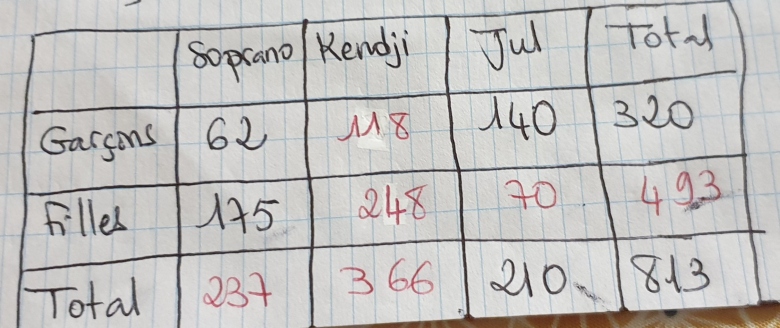 Soprano Kendji Jul Total
Garçons 62 118 140 320
Filles 175 248 70 493
Total 237 366 210 813